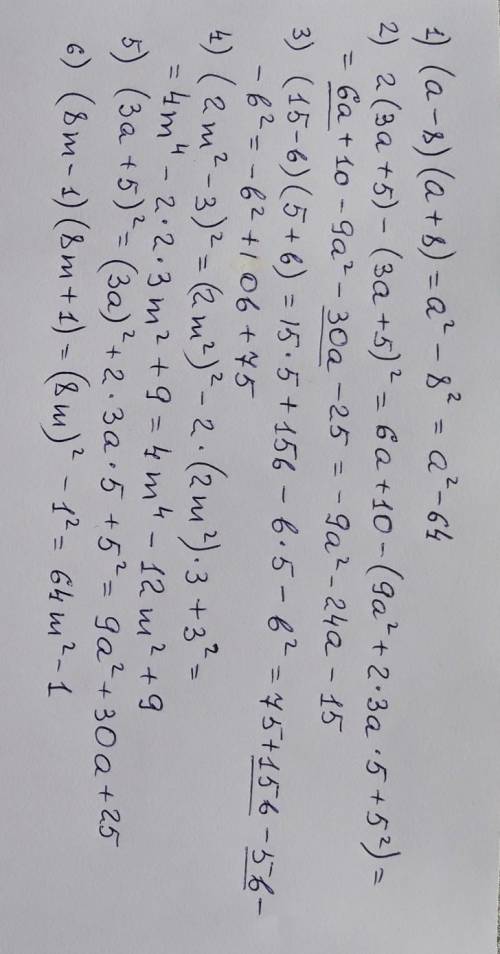 1) (a-8)(a+8) = a² - 8² = a² - 64
2) 2(3a+5) - (3a+5)² = 6a+10 - (9a² + 2·3a·5 + 5²) =
= 6a + 10 - 9a² - 30a - 25 = -9a² - 24a - 15
3) (15-b)(5+b) = 15·5 + 15b - b·5 - b² = 75 + 15b - 5b -
- b² = -b² + 10b + 75
4) (2m² - 3)² = (2m²)² - 2·(2m²)·3 + 3² =
= 4m⁴ - 2·2·3m² + 9 = 4m⁴ - 12m² + 9
5) (3a+5)² = (3a)² + 2·3a·5 + 5² = 9a² + 30a + 25
6) (8m-1)(8m+1) = (8m)² - 1² = 64m² - 1